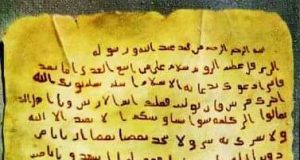 بسم الله الرحمن الرحيم من محمد عبد الله ورسوله
الى هرقل عظيم الروم سلام على من اتبع الهدى اما بعد
فانى ادعوك بدعاية الاسلام اسلم تسلم يوتك الله
اجرك مرتين فان توليت فعليك اثم الاريسيين ويا اهل الكتاب
تعالوا الى كلمة سوا بيننا وبينكم الا نعبد الا الله
ولا نشرك به شيا ولا يتخذ بعضنا بعضا اربابا من
دون الله فان تولوا فقولوا اشهدوا بانا